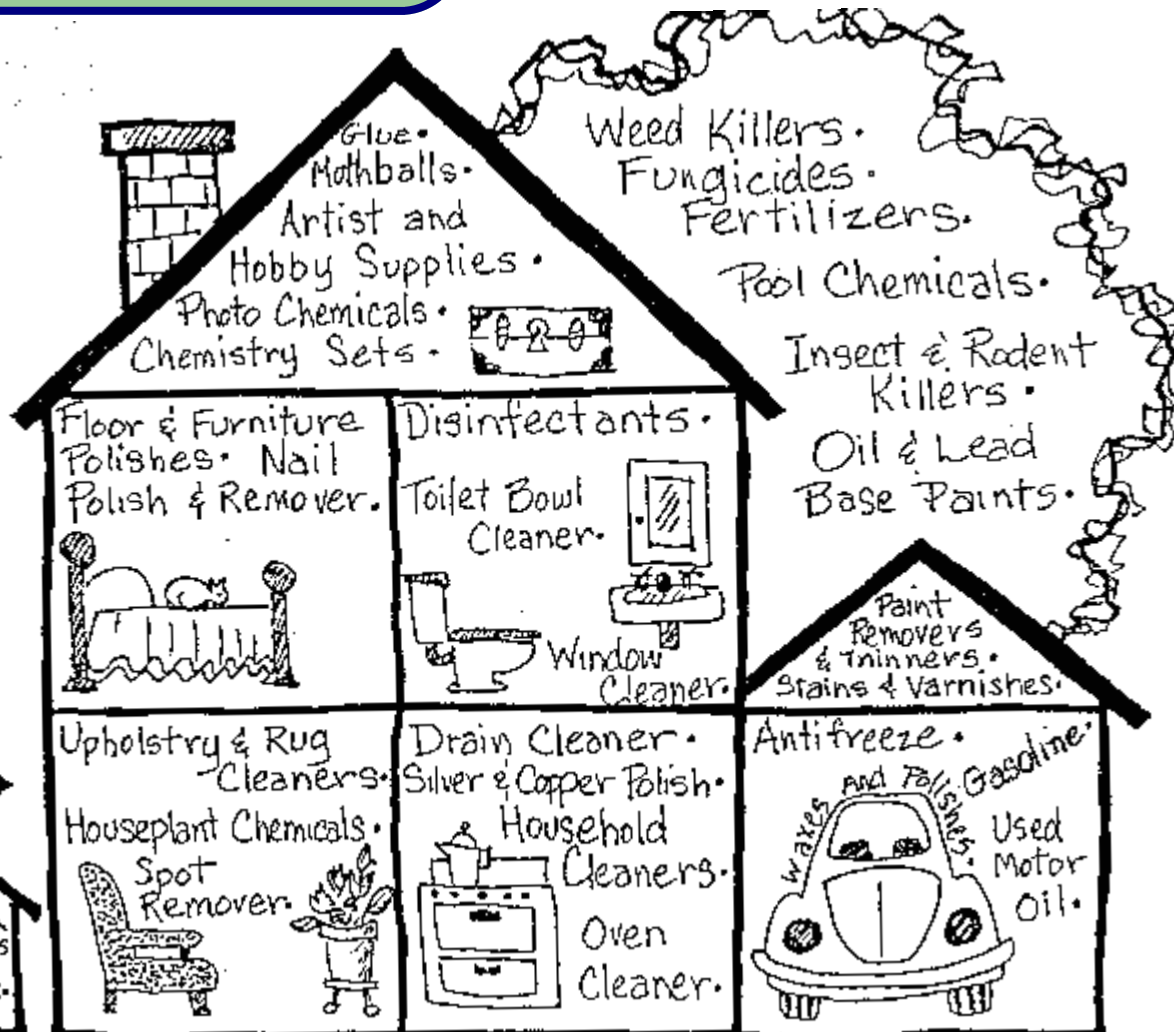 Glue •
Mothballs •
Artist and
Hobby Supplies •
Photo Chemicals •
Chemistry Sets •
Weed Killers •
Fungicides •
Fertilizers •
Pool Chemicals •
Insect & Rodent
Killers •
Oil & Lead
Base Paints •
Floor & Furniture
Polishes • Nail
Polish & Remover •
Disinfectants •
Toilet Bowl
Cleaner •
Window
Cleaner •
Paint
Removers
& Thinners •
Stains & Varnishes •
Upholstry & Rug
Cleaners •
Houseplant Chemicals •
Spot
Remover •
Drain Cleaner •
Silver & Copper Polish •
Household
Cleaners •
Oven
Cleaner •
Antifreeze •
Waxes And Polishes •
Gasoline •
Used
Motor
Oil •